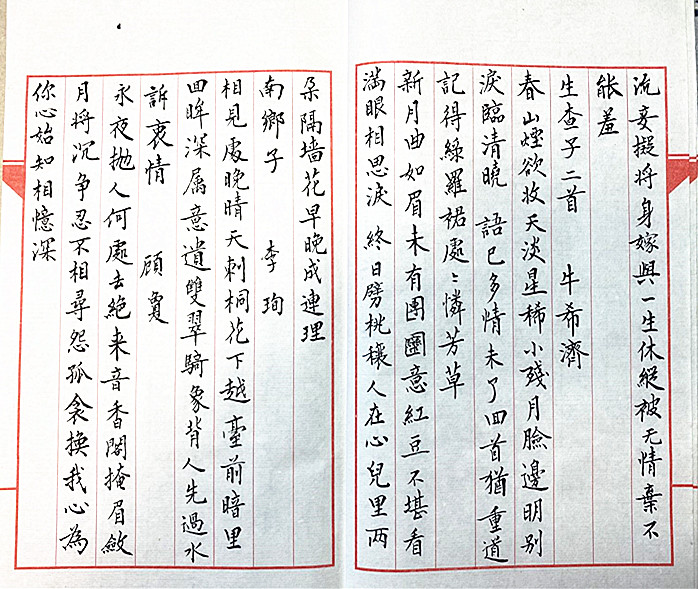 流妾擬将身嫁與一生休縱被无情棄不
能羞
生查子二首 牛希濟
春山煙欲收天淡星稀小殘月臉邊明别
淚臨清曉 語已多情未了回首猶重道
記得綠羅裙處〻憐芳草
新月曲如眉未有團圞意紅豆不堪看
满眼相思淚 终日劈桃穰人在心兒里两
朵隔墙花早晚成連理
南鄉子 李珣
相見處晚晴天刺桐花下越臺前暗里
回眸深属意遺雙翠騎象背人先過水
訴衷情 顧敻
永夜抛人何處去絶来音香閣掩眉斂
月将沉争忍不相尋怨孤衾换我心為
你心始知相憶深